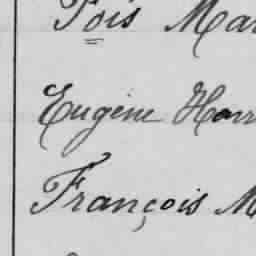 Pois Mar
Eugène Harr
François M